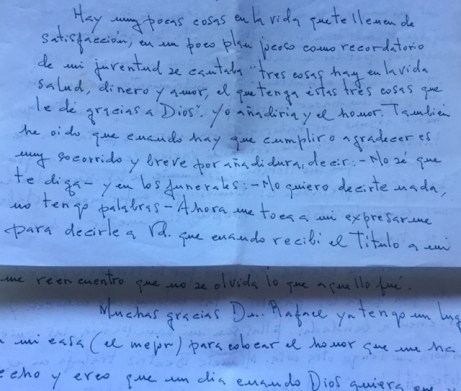 Hay muy pocas cosas en la vida que te llenen de
satisfacción, en un poco plan jocoso como recordatorio
de mi juventud se cantaba "tres cosas hay en la vida
salud, dinero y amor, el que tenga estas tres cosas que
le dé gracias a Dios". Yo añadiría y el honor. También
he oido que cuando hay que cumplir o agradecer es
muy socorrido y breve por añadidura, decir: - No sé que
te diga - y en los funerales: - No quiero decirte nada,
no tengo palabras - Ahora me toca a mi expresarme
para decirle a Vd. que cuando recibí el Titulo a mi
me reencuentro que no se olvida lo que aquello fué.
Muchas gracias Dn. Rafael ya tengo un lug
mi casa (el mejor) para colocar el honor que me ha
echo y creo que un dia cuando Dios quiera